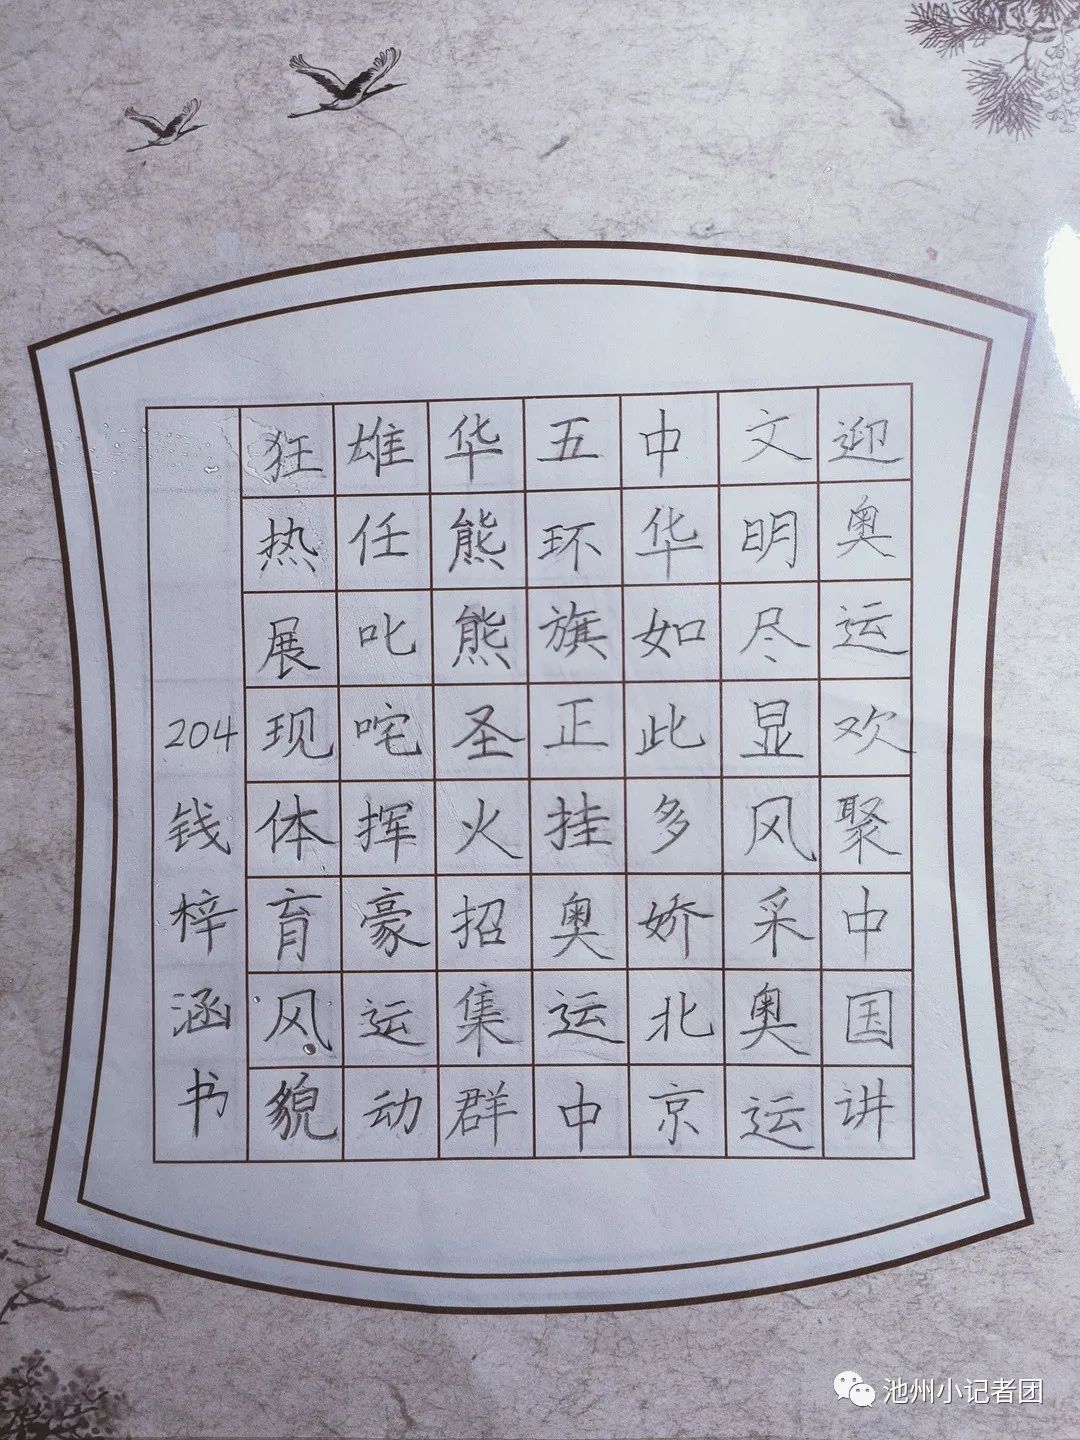 迎奥运欢聚中国讲
文明尽显风采奥运
中华如此多娇北京
五环旗正挂奥运中
华熊熊圣火招集群
雄任叱咤挥豪运动
狂热展现体育风貌
204钱梓涵书
池州小记者团